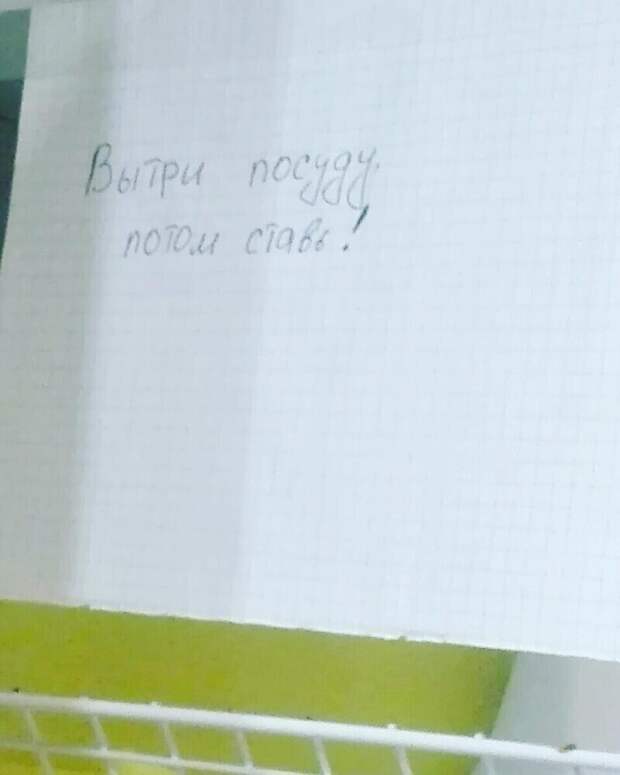 Вытри посуду,
потом ставь!